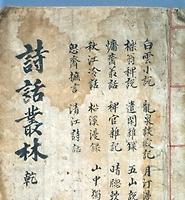 白雲小說
櫟翁稗說
慵齋叢話
秋江冷話
思齋摭言
龍泉談寂記
遣閑雜錄
稗官雜記
松溪漫錄
清江詩話
月汀漫
五山說
晴窓
山中獨
詩話叢林
乾